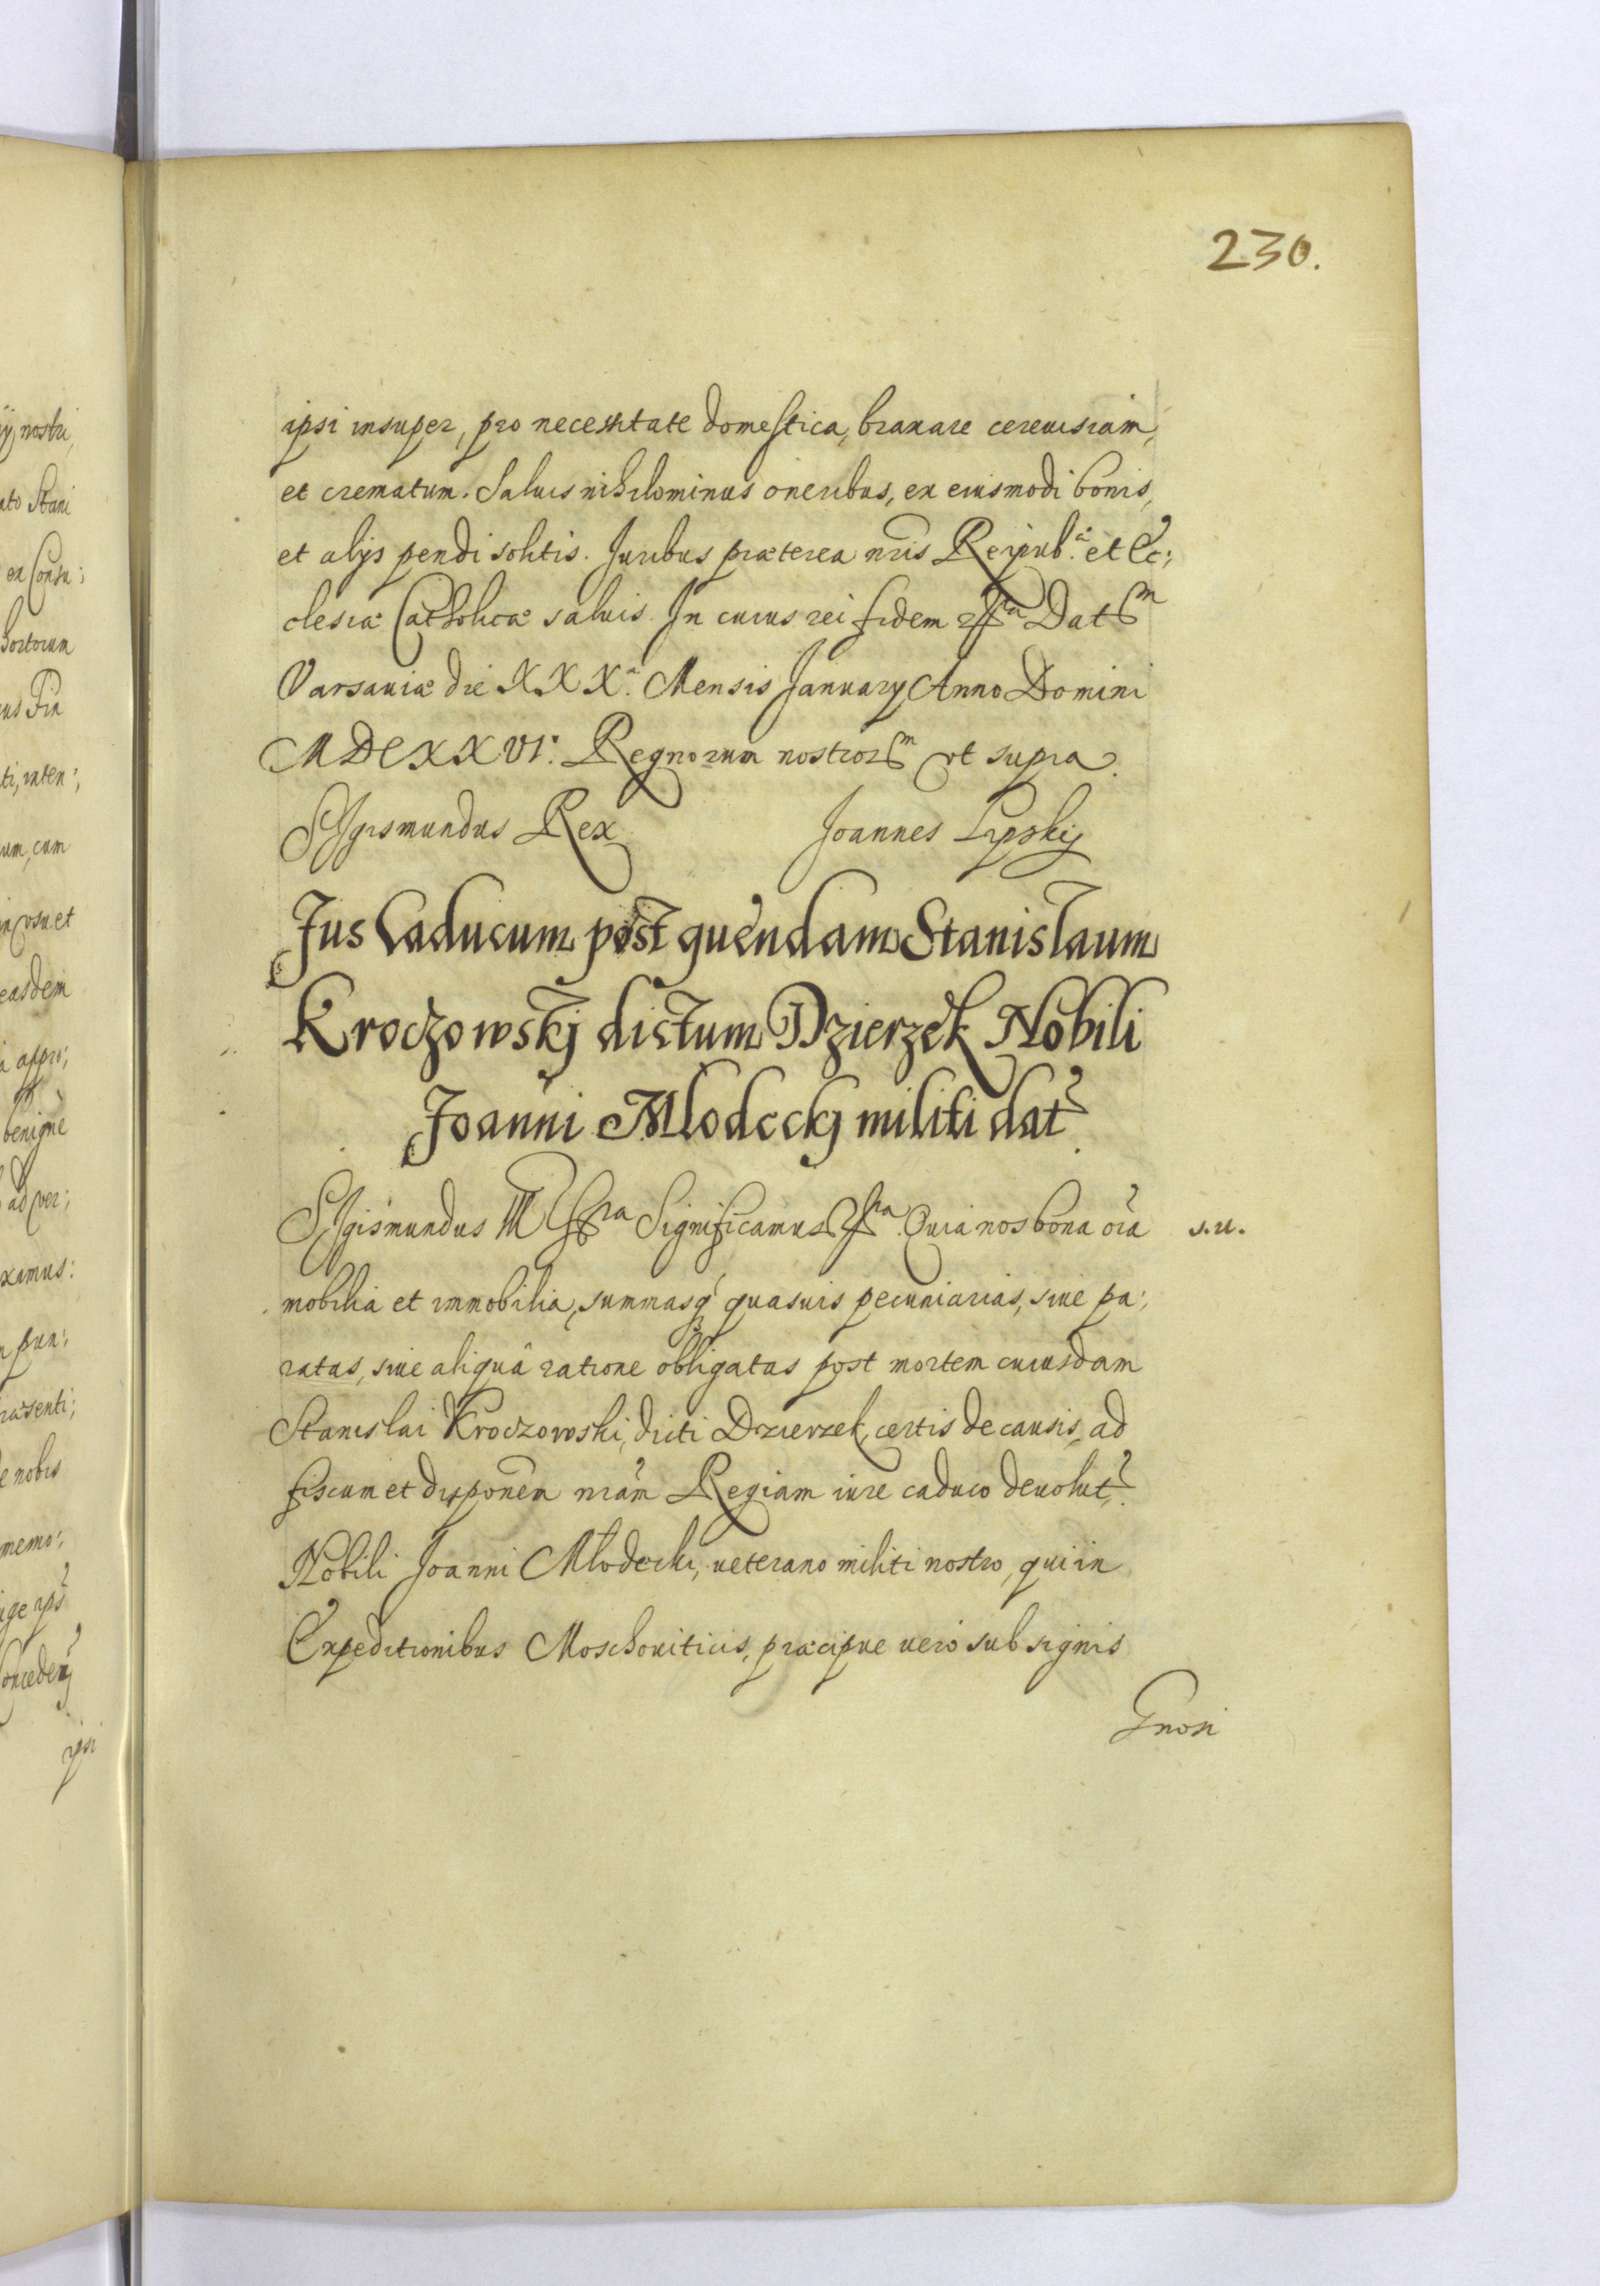 230.
ipsi insuper, pro necessitate domestica, braxare cereuisiam,
et crematum. Saluis nihilominus oneribus, ex eiusmodi bonis,
et alijs pendi solitis. Juribus præterea nris Reipub.ca et Ec:
clesiæ Catholicæ saluis. In cuius rei fidem etca Datm
Varsauiæ die XXXa. Mensis January Anno Domini
MDCXXVI. Regnorum nostrorm vt supra.
Sigismundus Rex Joannes Lipskij
Jus Caducum post quendam Stanislaum
Kroczowskj dictum Dzierzek Nobili
Joanni Mlodeckj militi dat
Sigismundus III etcra Significamus etcra. Quia nos bona oia
s.u.
mobilia et immobilia, summasq quasuis pecuniarias, siue pa:
ratas, siue aliquâ ratione obligatas post mortem cuiusdam
Stanislai Kroczowski, dicti Dzierzek, certis de causis, ad
fiscum et disponem nram Regiam iure caduco deuolut.
Nobili Joanni Młodecki, ueterano militi nostro, qui in
Expeditionibus Moschouiticis, præcipue uero sub signis
Gnosi
ij nostri,
ato Stani
ex Consu:
hortorum
ti, inten:
um, cum
in vsu et
easdem
a appro:
benigne
ad ver:
ximus:
præsenti:
e nobis
memo:
ipsi